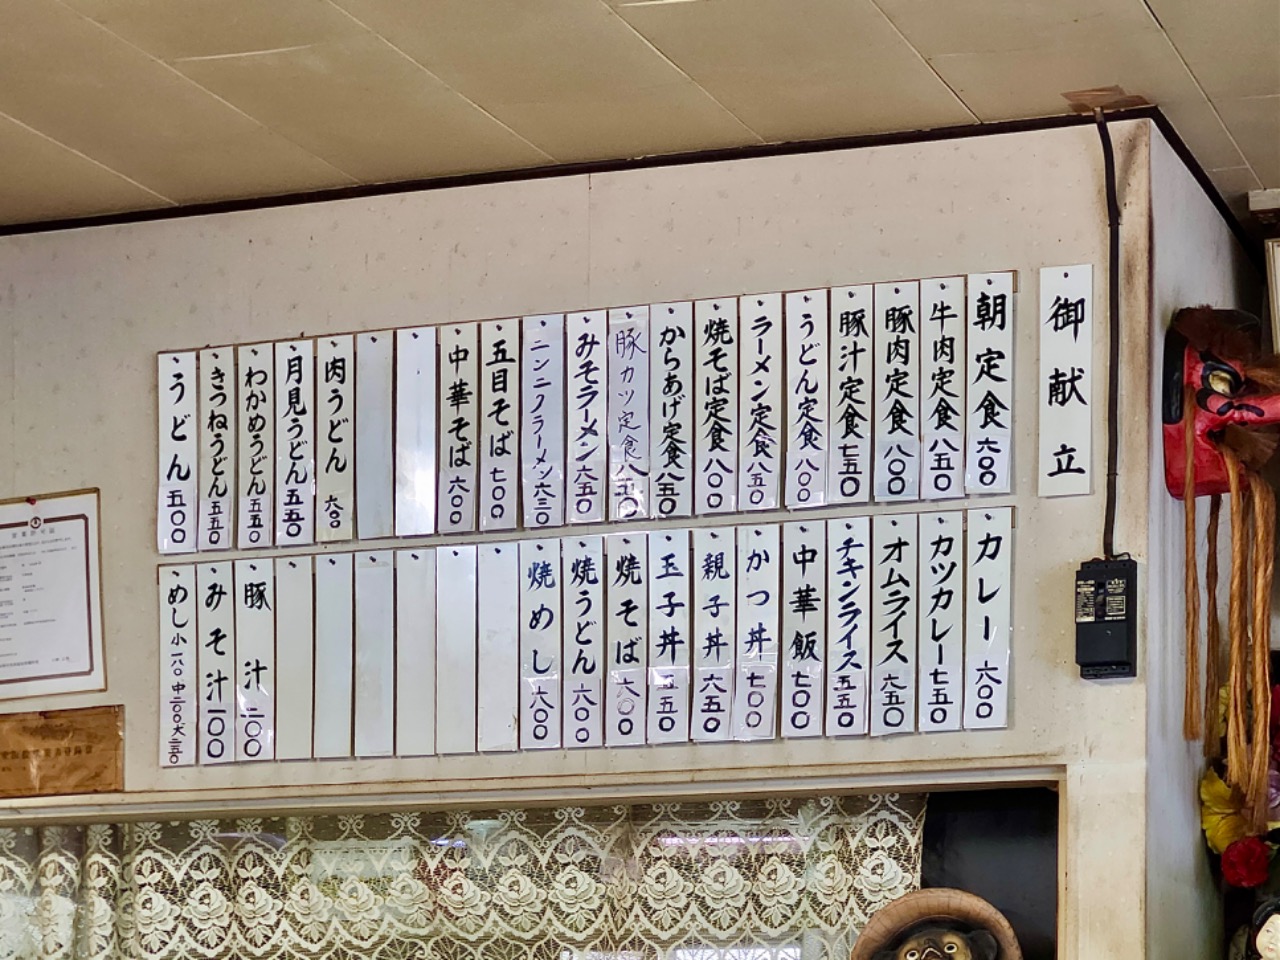 御献立
朝定食 六〇〇
牛肉定食 八五〇
豚肉定食 八〇〇
豚汁定食 七五〇
うどん定食 八〇〇
ラーメン定食 八五〇
焼そば定食 八〇〇
からあげ定食 八五〇
豚カツ定食 八五〇
みそラーメン 六五〇
ニンニクラーメン 六三〇
五目そば 七〇〇
中華そば 六〇〇
肉うどん 六〇〇
月見うどん 五五〇
わかめうどん 五五〇
きつねうどん 五五〇
うどん 五〇〇
カレー 六〇〇
カツカレー 七五〇
オムライス 六五〇
チキンライス 五五〇
中華飯 七〇〇
かつ丼 七〇〇
親子丼 六五〇
玉子丼 五五〇
焼そば 六〇〇
焼うどん 六〇〇
焼めし 六〇〇
豚汁 二〇〇
みそ汁 一〇〇
めし 小一八〇 中二〇〇 大二五〇